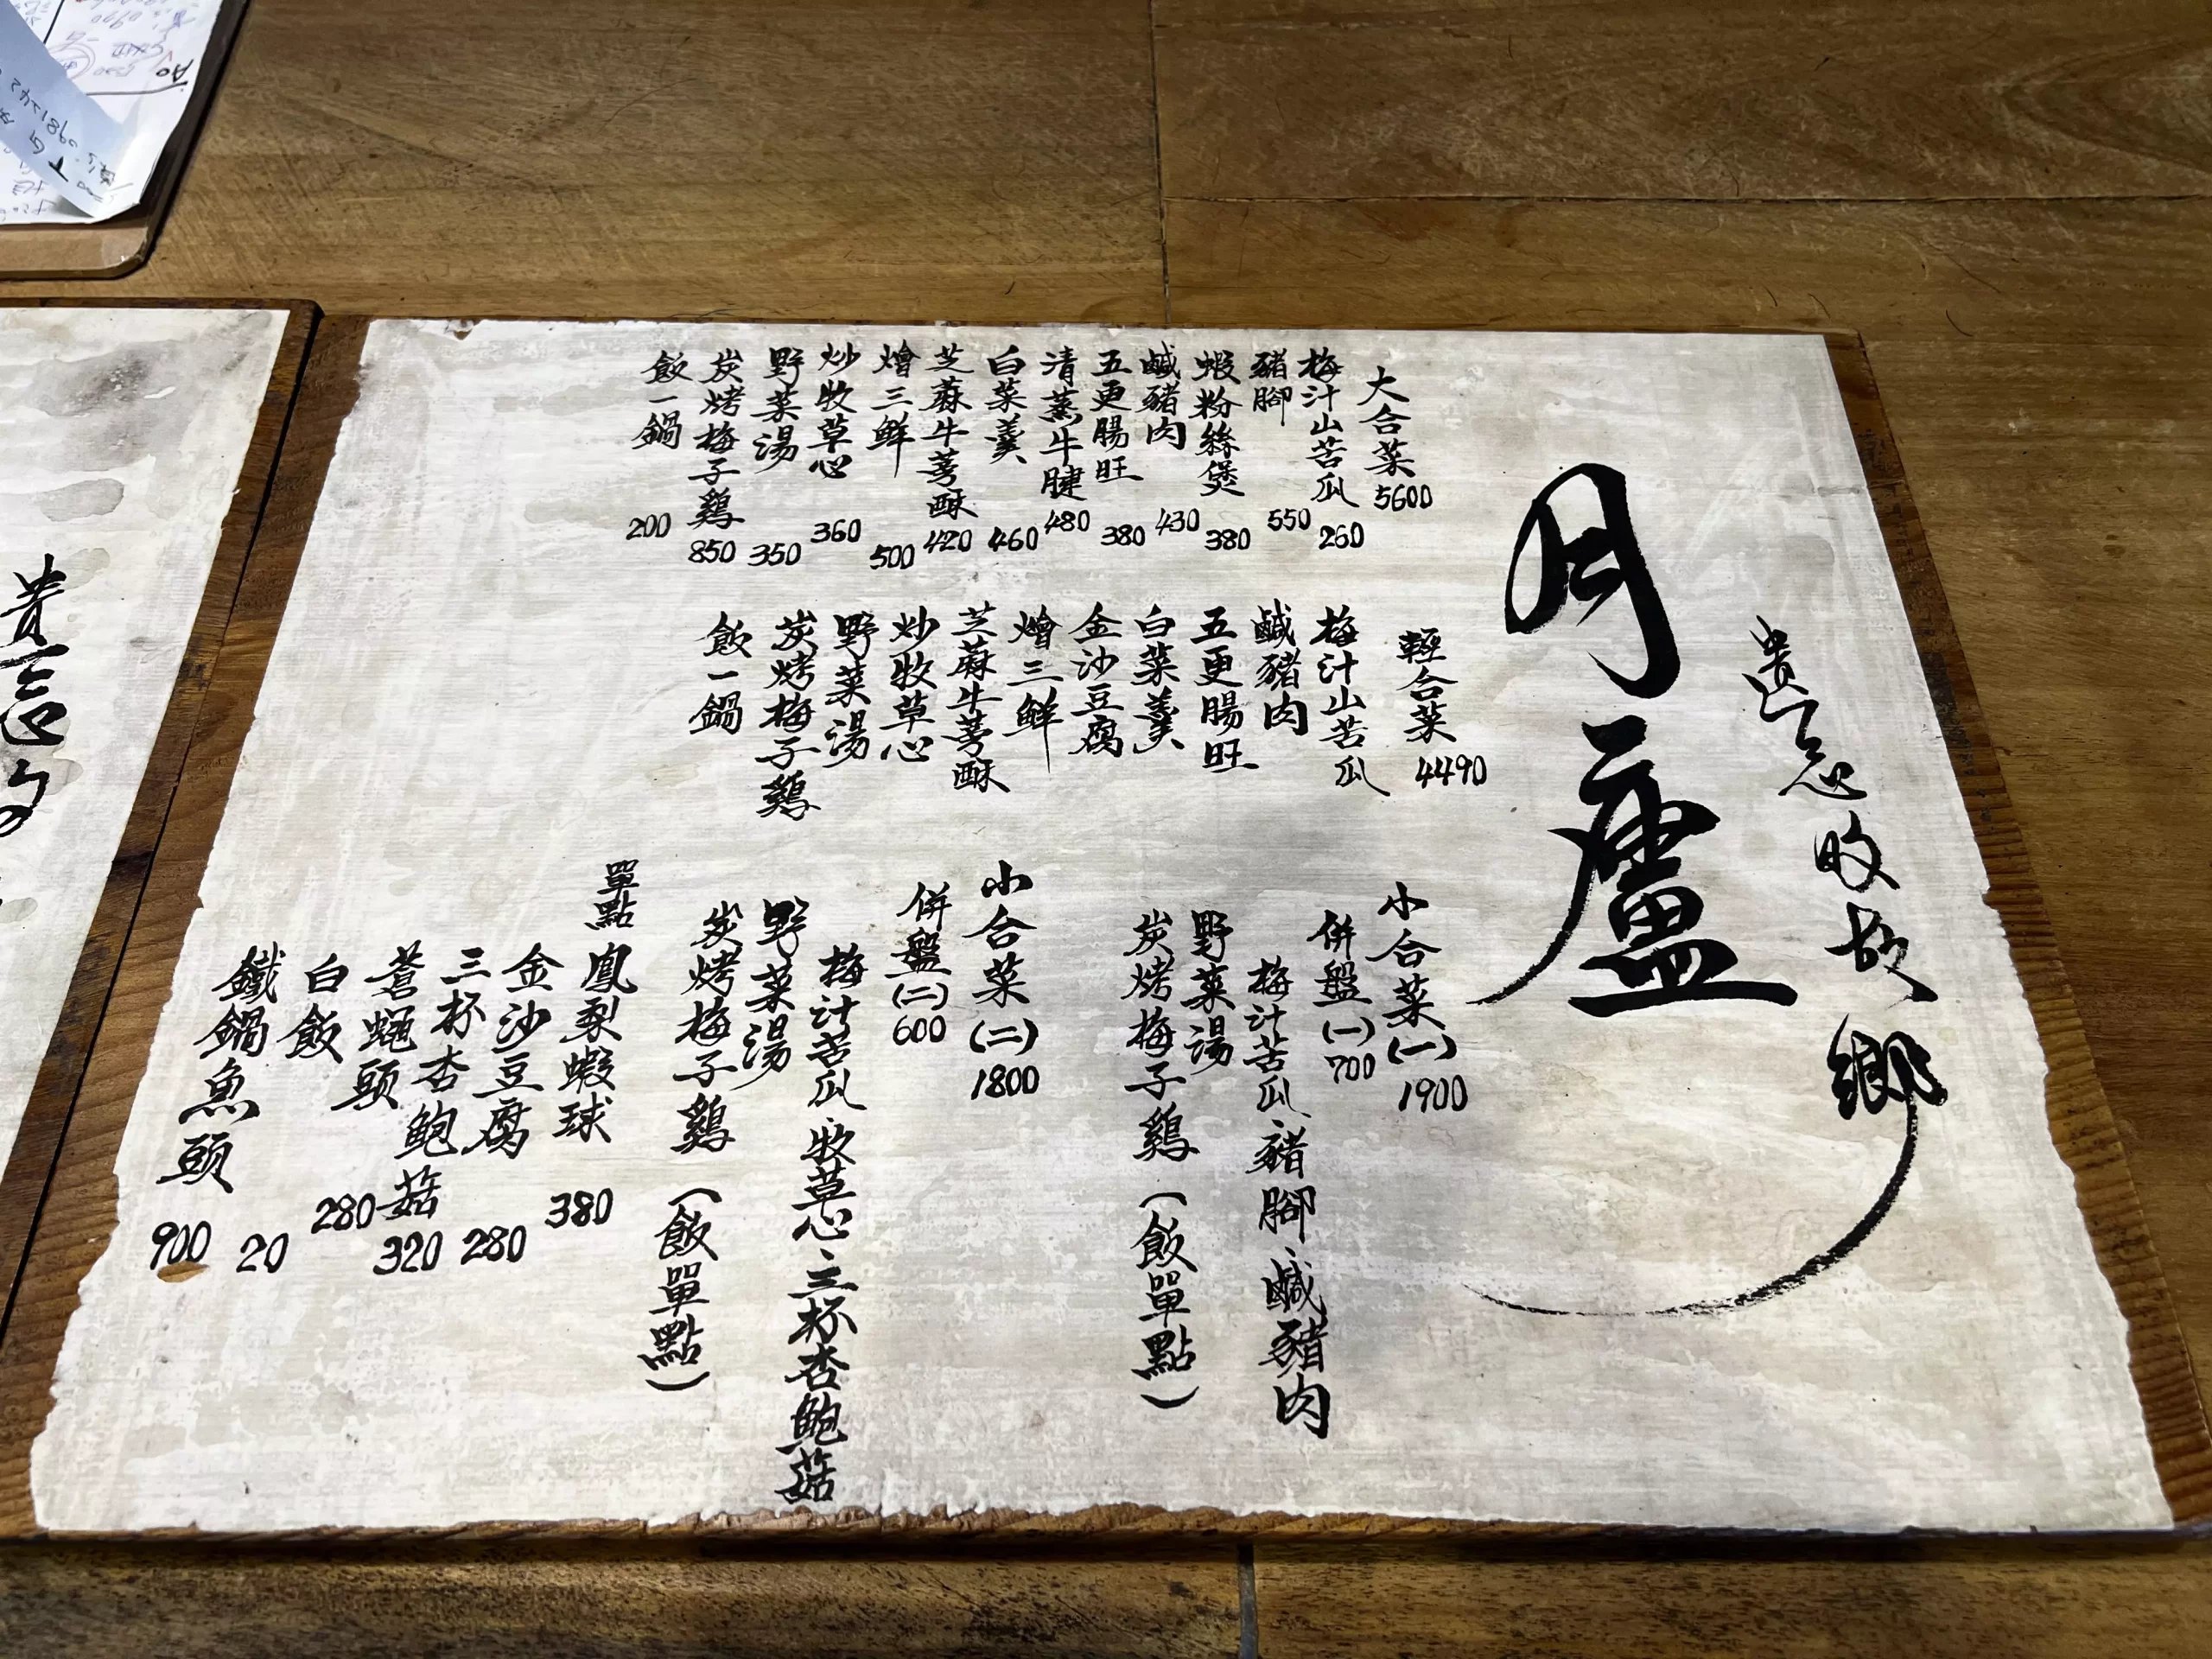 遺忘的故鄉
月廬
大合菜 5600
梅汁山苦瓜 260
豬腳 550
蝦粉絲煲 380
鹹豬肉 430
五更腸旺 380
清蒸牛腱 480
白菜羹 460
芝蔴牛蒡酥 420
燴三鮮 500
炒牧草心 360
野菜湯 350
炭烤梅子雞 850
飯一鍋 200
輕合菜 4490
梅汁山苦瓜
鹹豬肉
五更腸旺
白菜羹
金沙豆腐
燴三鮮
芝蔴牛蒡酥
炒牧草心
野菜湯
炭烤梅子雞
飯一鍋
小合菜(一) 1900
併盤(一) 700
梅汁苦瓜、豬腳、鹹豬肉
野菜湯
炭烤梅子雞(飯單點)
小合菜(二) 1800
併盤(二) 600
梅汁苦瓜、牧草心、三杯杏鮑菇
野菜湯
炭烤梅子雞(飯單點)
單點
鳳梨蝦球 380
金沙豆腐 280
三杯杏鮑菇 320
蒼蠅頭 280
白飯 20
鐵鍋魚頭 900